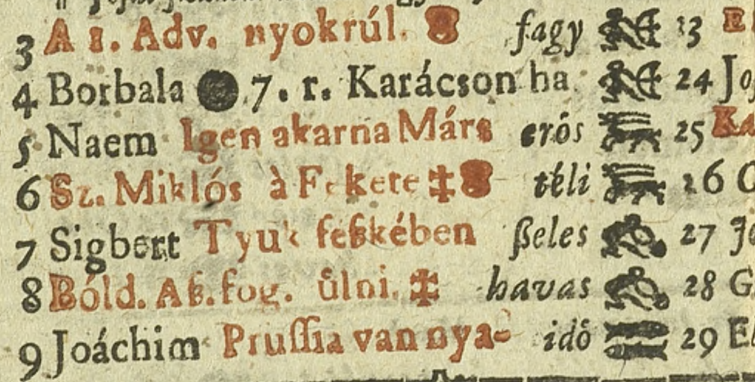 3 A 1. Adv. nyokrúl. fagy 13 E
4 Borbala 7. r. Karácson ha 24 Jo
5 Naem Igen akarna Márs erős 25 Ka
6 Sz. Miklós à Fekete ‡ téli 26 C
7 Sigbert Tyuk feßkében ßeles 27 Jo
8 Bóld. Aß. fog. űlni. ‡ havas 28 G
9 Joáchim Pruſſia van nya- idő 29 El